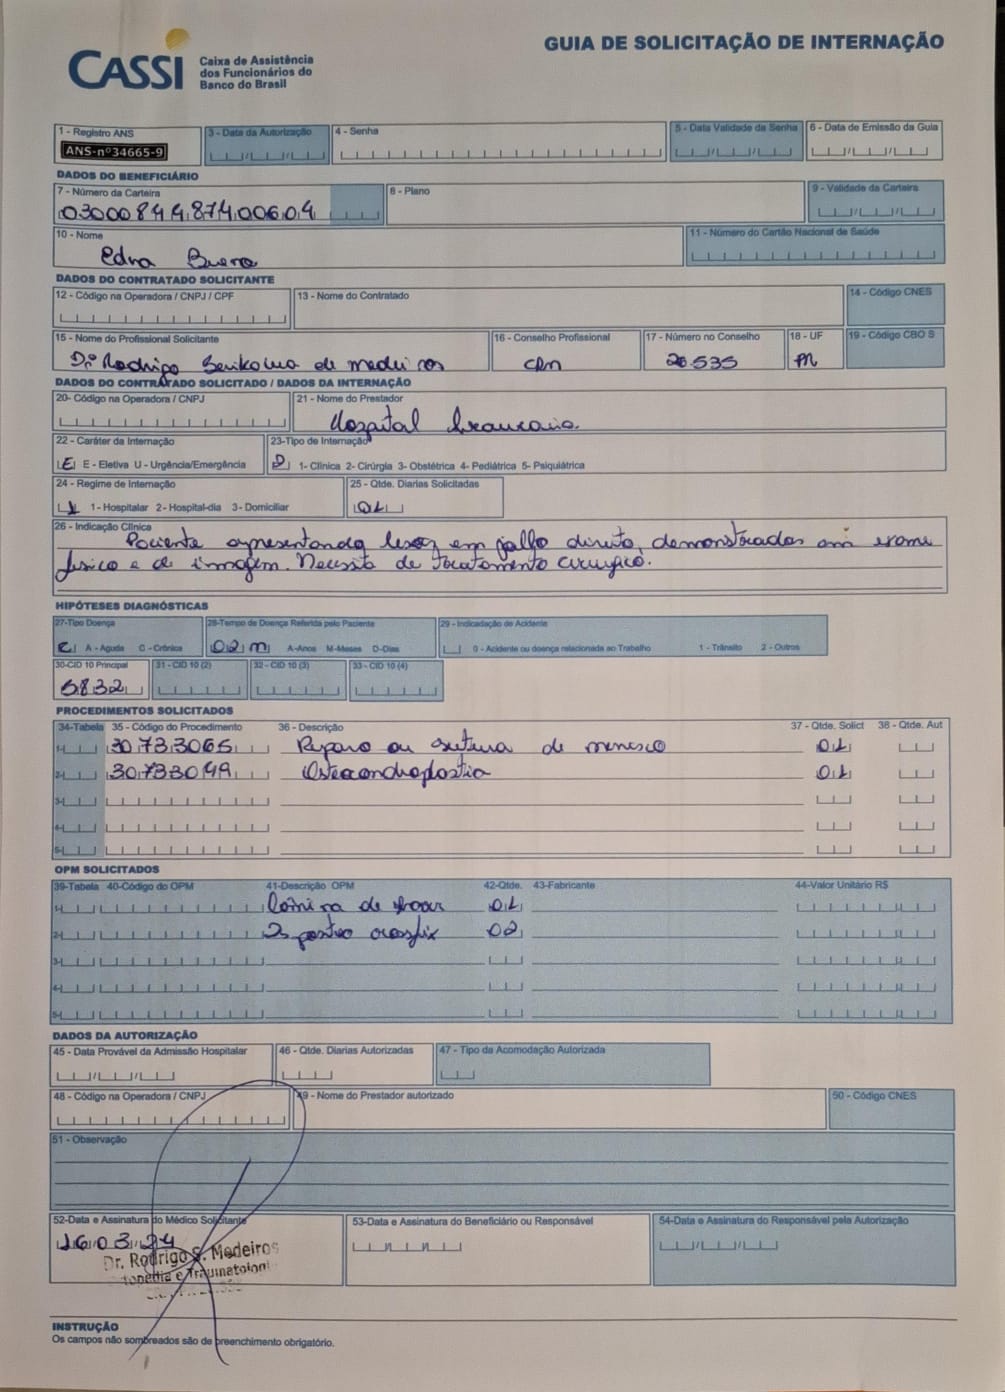 CASSI
Caixa de Assistência
dos Funcionários do
Banco do Brasil
GUIA DE SOLICITAÇÃO DE INTERNAÇÃO
1 - Registro ANS
ANS-nº34665-9
3 - Data da Autorização
4 - Senha
5 - Data Validade da Senha
6 - Data de Emissão da Guia
DADOS DO BENEFICIÁRIO
7 - Número da Carteira
8 - Plano
9 - Validade da Carteira
10 - Nome
Edna Bueno
11 - Número do Cartão Nacional de Saúde
DADOS DO CONTRATADO SOLICITANTE
12 - Código na Operadora / CNPJ / CPF
13 - Nome do Contratado
14 - Código CNES
15 - Nome do Profissional Solicitante
Dr. Rodrigo de Medeiros
16 - Conselho Profissional
CRM
17 - Número no Conselho
20.535
18 - UF
PR
19 - Código CBO S
DADOS DO CONTRATADO SOLICITADO / DADOS DA INTERNAÇÃO
20- Código na Operadora / CNPJ
21 - Nome do Prestador
Hospital
22 - Caráter da Internação
E E - Eletiva U - Urgência/Emergência
23-Tipo de Internação
2 1- Clínica 2- Cirúrgia 3- Obstétrica 4- Pediátrica 5- Psiquiátrica
24 - Regime de Internação
1 1 - Hospitalar 2 - Hospital-dia 3 - Domiciliar
25 - Qtde. Diarias Solicitadas
01
26 - Indicação Clínica
Paciente apresentando em direito, demonstradas em exame
físico e de imagem. Necessita de tratamento cirurgico.
HIPÓTESES DIAGNÓSTICAS
27-Tipo Doença
C A - Aguda C - Crônica
28-Tempo de Doença Referida pelo Paciente
02 M A-Anos M-Meses D-Dias
29 - Indicadação de Acidente
0 - Acidente ou doença relacionada ao Trabalho 1 - Trânsito 2 - Outros
30-CID 10 Principal
S832
31 - CID 10 (2)
32 - CID 10 (3)
33 - CID 10 (4)
PROCEDIMENTOS SOLICITADOS
34-Tabela 35 - Código do Procedimento 36 - Descrição 37 - Qtde. Solict 38 - Qtde. Aut
1- 30733065 Reparo ou sutura de menisco 01
2- 30733049 Osteocondroplastia 01
3-
4-
5-
OPM SOLICITADOS
39-Tabela 40-Código do OPM 41-Descrição OPM 42-Qtde. 43-Fabricante 44-Valor Unitário R$
1- Lâmina de 01
2- 02
3-
4-
5-
DADOS DA AUTORIZAÇÃO
45 - Data Provável da Admissão Hospitalar
46 - Qtde. Diarias Autorizadas
47 - Tipo da Acomodação Autorizada
48 - Código na Operadora / CNPJ
49 - Nome do Prestador autorizado
50 - Código CNES
51 - Observação
52-Data e Assinatura do Médico Solicitante
16 03 24
Dr. Rodrigo S. Medeiros
53-Data e Assinatura do Beneficiário ou Responsável
54-Data e Assinatura do Responsável pela Autorização
INSTRUÇÃO
Os campos não sombreados são de preenchimento obrigatório.